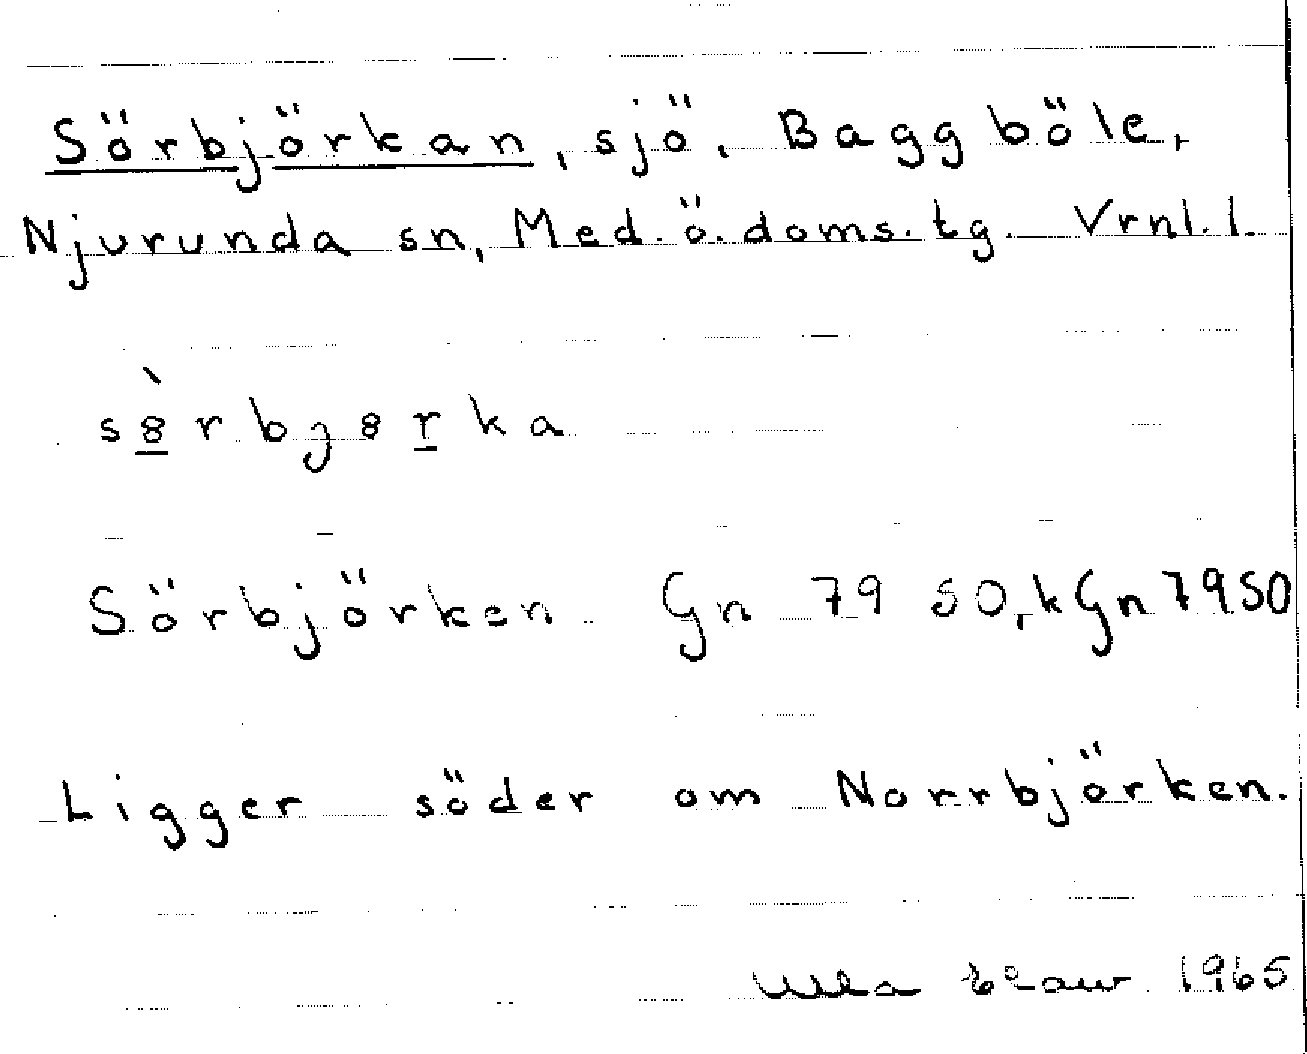 Sörbjörkan, sjö. Baggböle,
Njurunda sn, Med. ö. doms. tg. Vrnl. l.
sö̀rbjörka
Sörbjörken Gn 79 50, kGn 7950
Ligger söder om Norrbjörken.
Ulla 1965